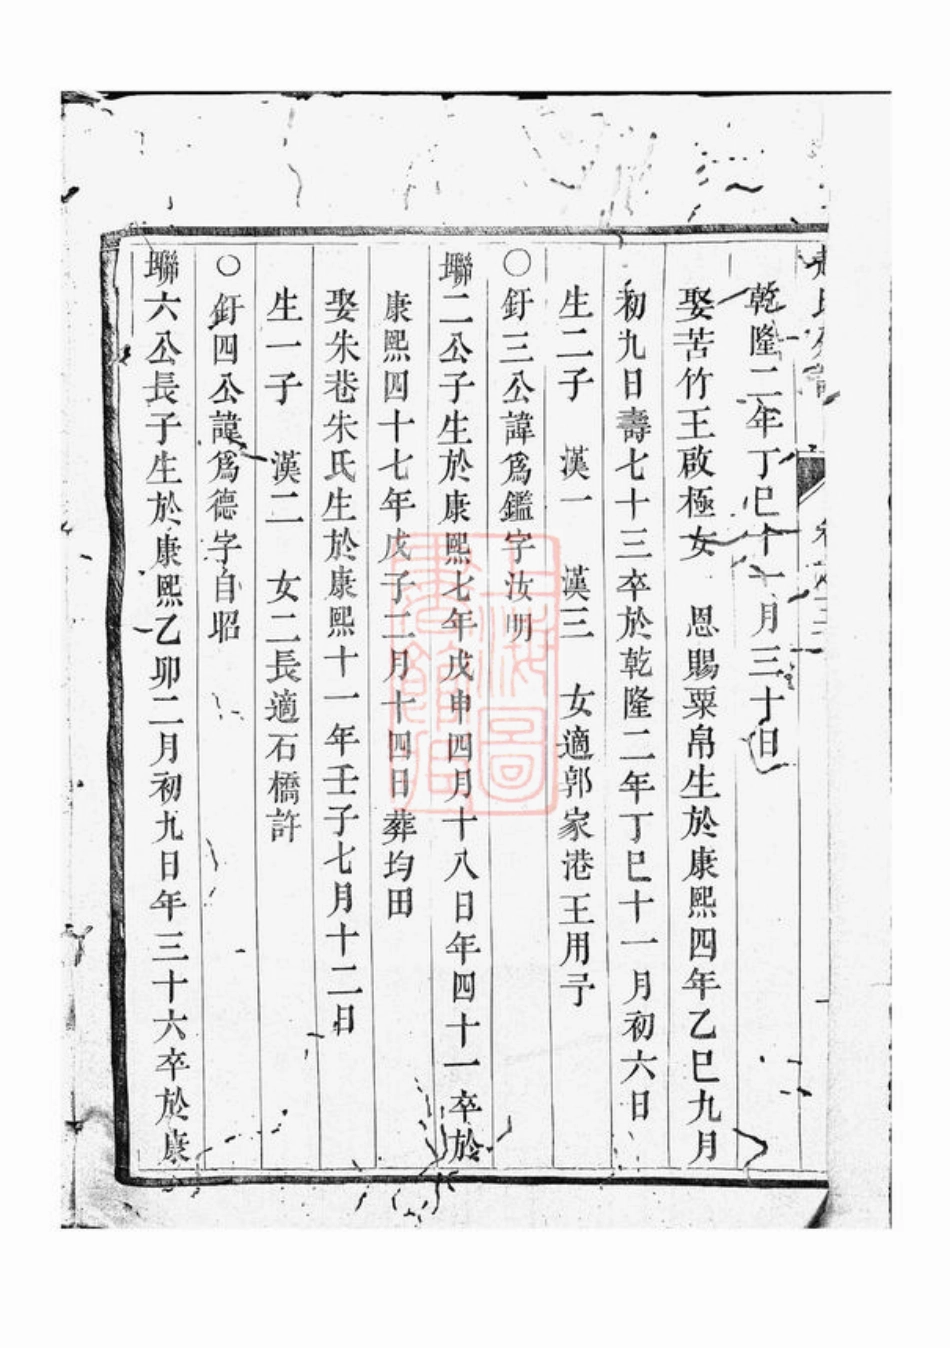 乾隆二年丁巳十一月三十日
娶苦竹王啟極女　恩賜粟帛生於康熙四年乙巳九月
初九日壽七十三卒於乾隆二年丁巳十一月初六日
生二子　漢一　漢三　女適郭家港王用予
○釪三公諱爲鑑字汝明
聯二公子生於康熙七年戊申四月十八日年四十一卒於
康熙四十七年戊子二月十四日葬均田
娶朱巷朱氏生於康熙十一年壬子七月十二日
生一子　漢二　女二長適石橋許
○釪四公諱爲德字自昭
聯六公長子生於康熙乙卯二月初九日年三十六卒於康